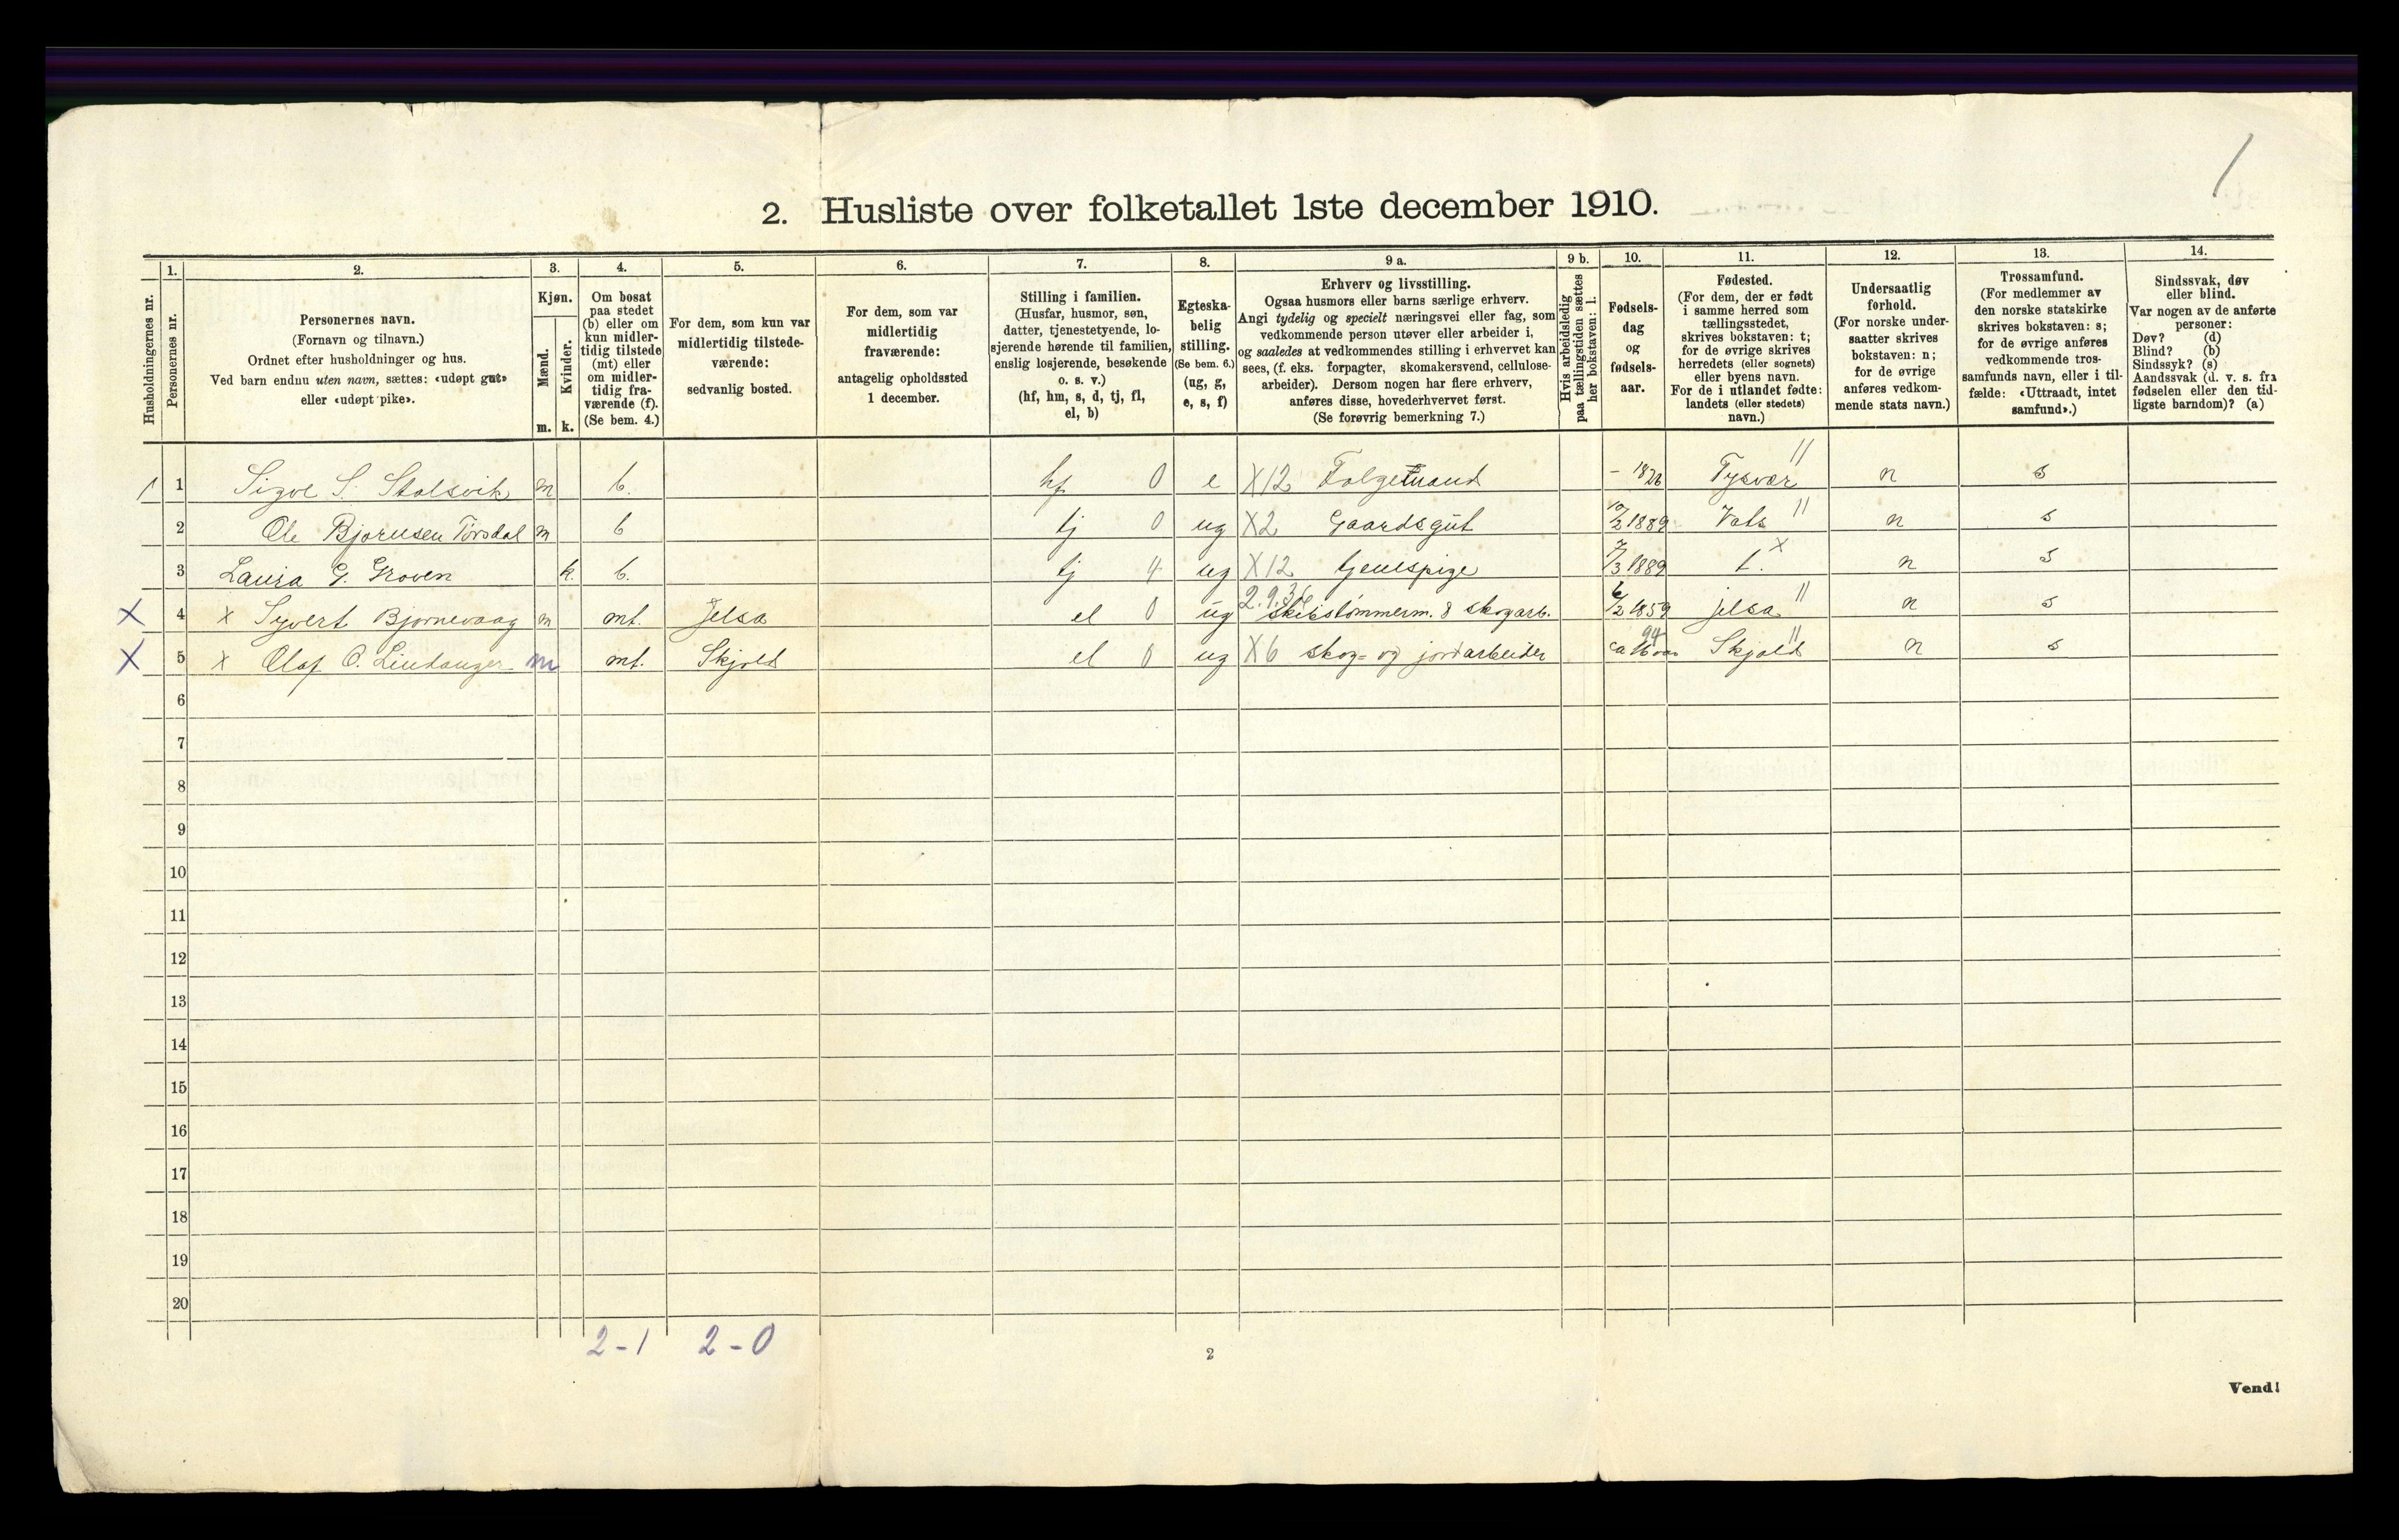 1
2. Husliste over folketallet 1ste december 1910.
Husholdningernes nr.
1.
Personernes nr.
2.
Personernes navn.
(Fornavn og tilnavn.)
Ordnet efter husholdninger og hus.
Ved barn endnu uten navn, sættes: «udøpt gut»
eller «udøpt pike».
3.
Kjøn.
Mænd.
Kvinder.
m. k.
4.
Om bosat
paa stedet
(b) eller om
kun midler-
tidig tilstede
(mt) eller
om midler-
tidig fra-
værende (f).
(Se bem. 4.)
5.
For dem, som kun var
midlertidig tilstede-
værende:
sedvanlig bosted.
6.
For dem, som var
midlertidig
fraværende:
antagelig opholdssted
1 december.
7.
Stilling i familien.
(Husfar, husmor, søn,
datter, tjenestetyende, lo-
sjerende hørende til familien,
enslig losjerende, besøkende
o. s. v.)
(hf, hm, s, d, tj, fl,
el, b)
8.
Egteska-
belig
stilling.
(Se bem. 6.)
(ug, g,
e, s, f)
9 a.
Erhverv og livsstilling.
Ogsaa husmors eller barns særlige erhverv.
Angi tydelig og specielt næringsvei eller fag, som
vedkommende person utøver eller arbeider i,
og saaledes at vedkommendes stilling i erhvervet kan
sees, (f. eks. forpagter, skomakersvend, cellulose-
arbeider). Dersom nogen har flere erhverv,
anføres disse, hovederhvervet først.
(Se forøvrig bemerkning 7.)
9 b.
Hvis arbeidsledig
paa tællingstiden sættes
her bokstaven: l.
10.
Fødsels-
dag
og
fødsels-
aar.
11.
Fødested.
(For dem, der er født
i samme herred som
tællingsstedet,
skrives bokstaven: t;
for de øvrige skrives
herredets (eller sognets)
eller byens navn.
For de i utlandet fødte:
landets (eller stedets)
navn.)
12.
Undersaatlig
forhold.
(For norske under-
saatter skrives
bokstaven: n;
for de øvrige
anføres vedkom-
mende stats navn.)
13.
Trossamfund.
(For medlemmer av
den norske statskirke
skrives bokstaven: s;
for de øvrige anføres
vedkommende tros-
samfunds navn, eller i til-
fælde: «Uttraadt, intet
samfund».)
14.
Sindssvak, døv
eller blind.
Var nogen av de anførte
personer:
Døv? (d)
Blind? (b)
Sindssyk? (s)
Aandssvak (d. v. s. fra
fødselen eller den tid-
ligste barndom)? (a)
1 1 Sigve S. Stølsvik m b. hf 0 e X12 Folgemand - 1826 Tysvær " n s
2 Ole Bjørnsen Tørsdal m b tj 0 ug X2 Gaardsgut 10/2 1889 Vats " n s
3 Laura G. Groven k. b. tj 4 ug X12 tjenespige 7/3 1889 t. x n s
X 4 x Syvert Bjørnevaag m mt. Jelsa el 0 ug 2.9.3 skibstømmerm. & skogarb. 6/2 1859 jelsa " n s
X 5 x Olaf O. Lindanger m mt. Skjold el 0 ug X6 skog- og jordarbeider ca 16 aar 94 Skjold " n s
6
7
8
9
10
11
12
13
14
15
16
17
18
19
20
2-1 2-0
2
Vend!